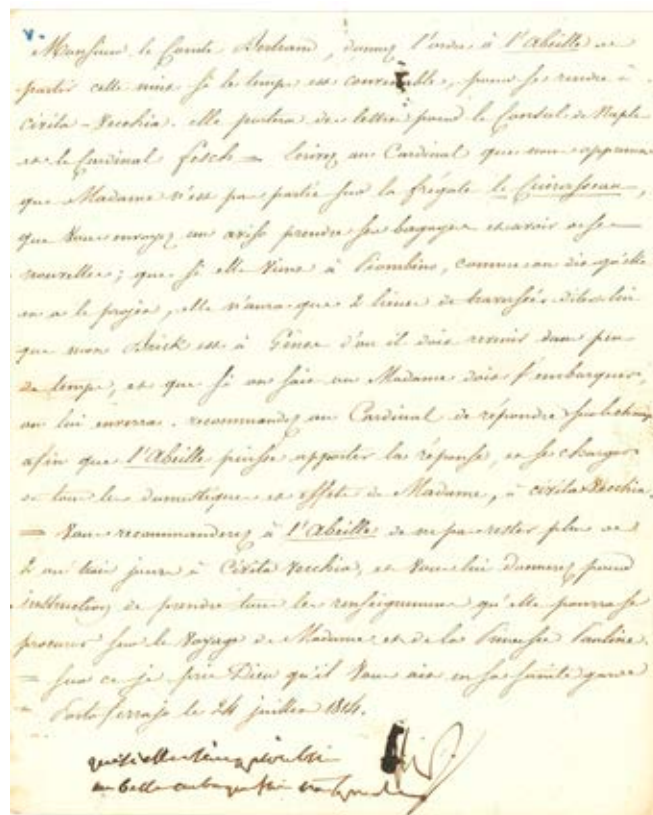 Monsieur le Comte Bertrand, donnez l'ordre à l'Abeille de
partir cette nuit si le temps est convenable, pour se rendre à
civita-Vecchia. elle portera des lettres pour le Consul de Naples
et le Cardinal fesch = écrivez au Cardinal que nous apprenons
que Madame n'est pas partie sur la frégate
que vous envoyez un aviso prendre ses bagages et avoir de ses
nouvelles; que si elle vient à Piombino, comme on dit qu'elle
en a le projet, elle n'aura que 2 lieues de traversée. dites lui
que mon Brick est à Gênes d'où il doit revenir dans peu
de temps, et que si on sait où Madame doit s'embarquer,
on lui enverra. recommandez au Cardinal de répondre sur le champ
afin que l'Abeille puisse apporter la réponse, et se charger
de tous les domestiques et effets de Madame, à civita Vecchia.
= Vous recommanderez à l'Abeille de ne pas rester plus de
2 ou trois jours à Civita Vecchia, et vous lui donnerez pour
instruction de prendre tous les renseignemens qu'elle pourra se
procurer sur le voyage de Madame et de la Princesse Pauline.
= sur ce je prie Dieu qu'il vous ait en sa sainte garde
= Porto ferrajo le 24 juillet 1814.